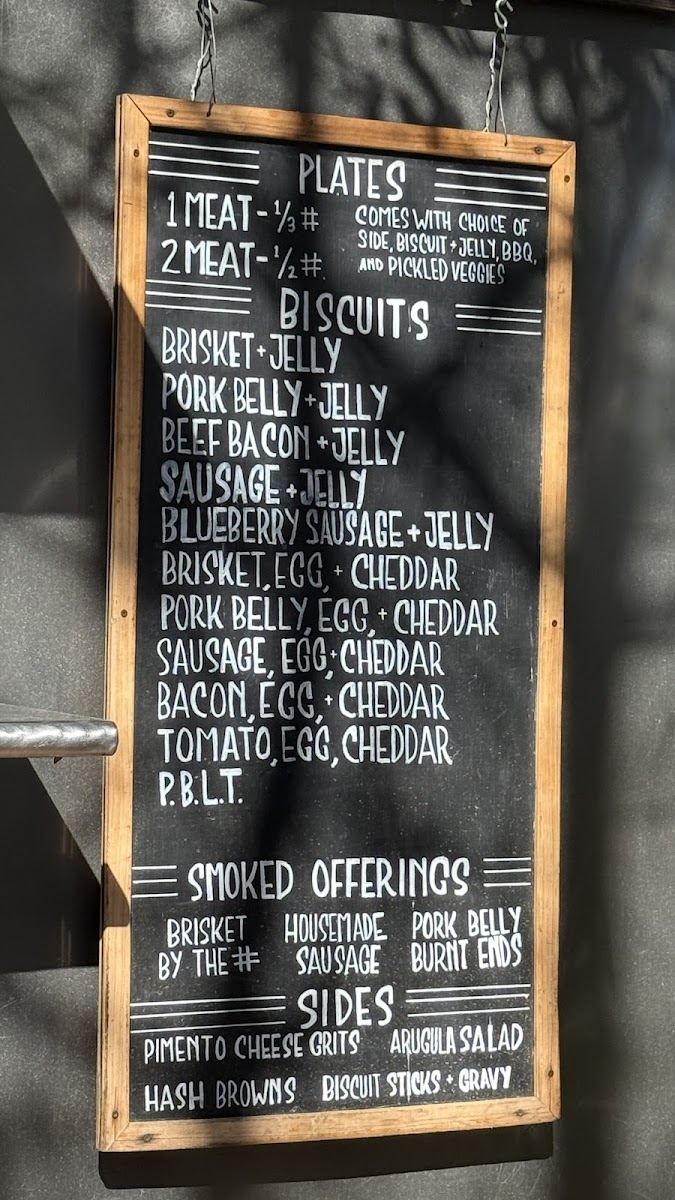 PLATES
1 MEAT - 1/3 #
2 MEAT - 1/2 #
COMES WITH CHOICE OF
SIDE, BISCUIT + JELLY, BBQ,
AND PICKLED VEGGIES
BISCUITS
BRISKET + JELLY
PORK BELLY + JELLY
BEEF BACON + JELLY
SAUSAGE + JELLY
BLUEBERRY SAUSAGE + JELLY
BRISKET, EGG, + CHEDDAR
PORK BELLY, EGG, + CHEDDAR
SAUSAGE, EGG, + CHEDDAR
BACON, EGG, + CHEDDAR
TOMATO, EGG, CHEDDAR
P.B.L.T.
SMOKED OFFERINGS
BRISKET
BY THE #
HOUSEMADE
SAUSAGE
PORK BELLY
BURNT ENDS
SIDES
PIMENTO CHEESE GRITS ARUGULA SALAD
HASH BROWNS BISCUIT STICKS + GRAVY